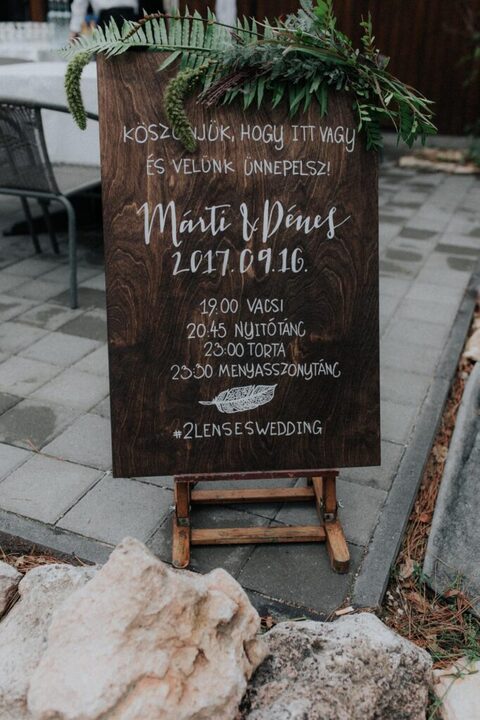 KÖSZÖNJÜK, HOGY ITT VAGY
ÉS VELÜNK ÜNNEPELSZ!
Márti & Dénes
2017.09.16.
19:00 VACSI
20:45 NYITÓTÁNC
23:00 TORTA
23:30 MENYASSZONYTÁNC
#2LENSESWEDDING